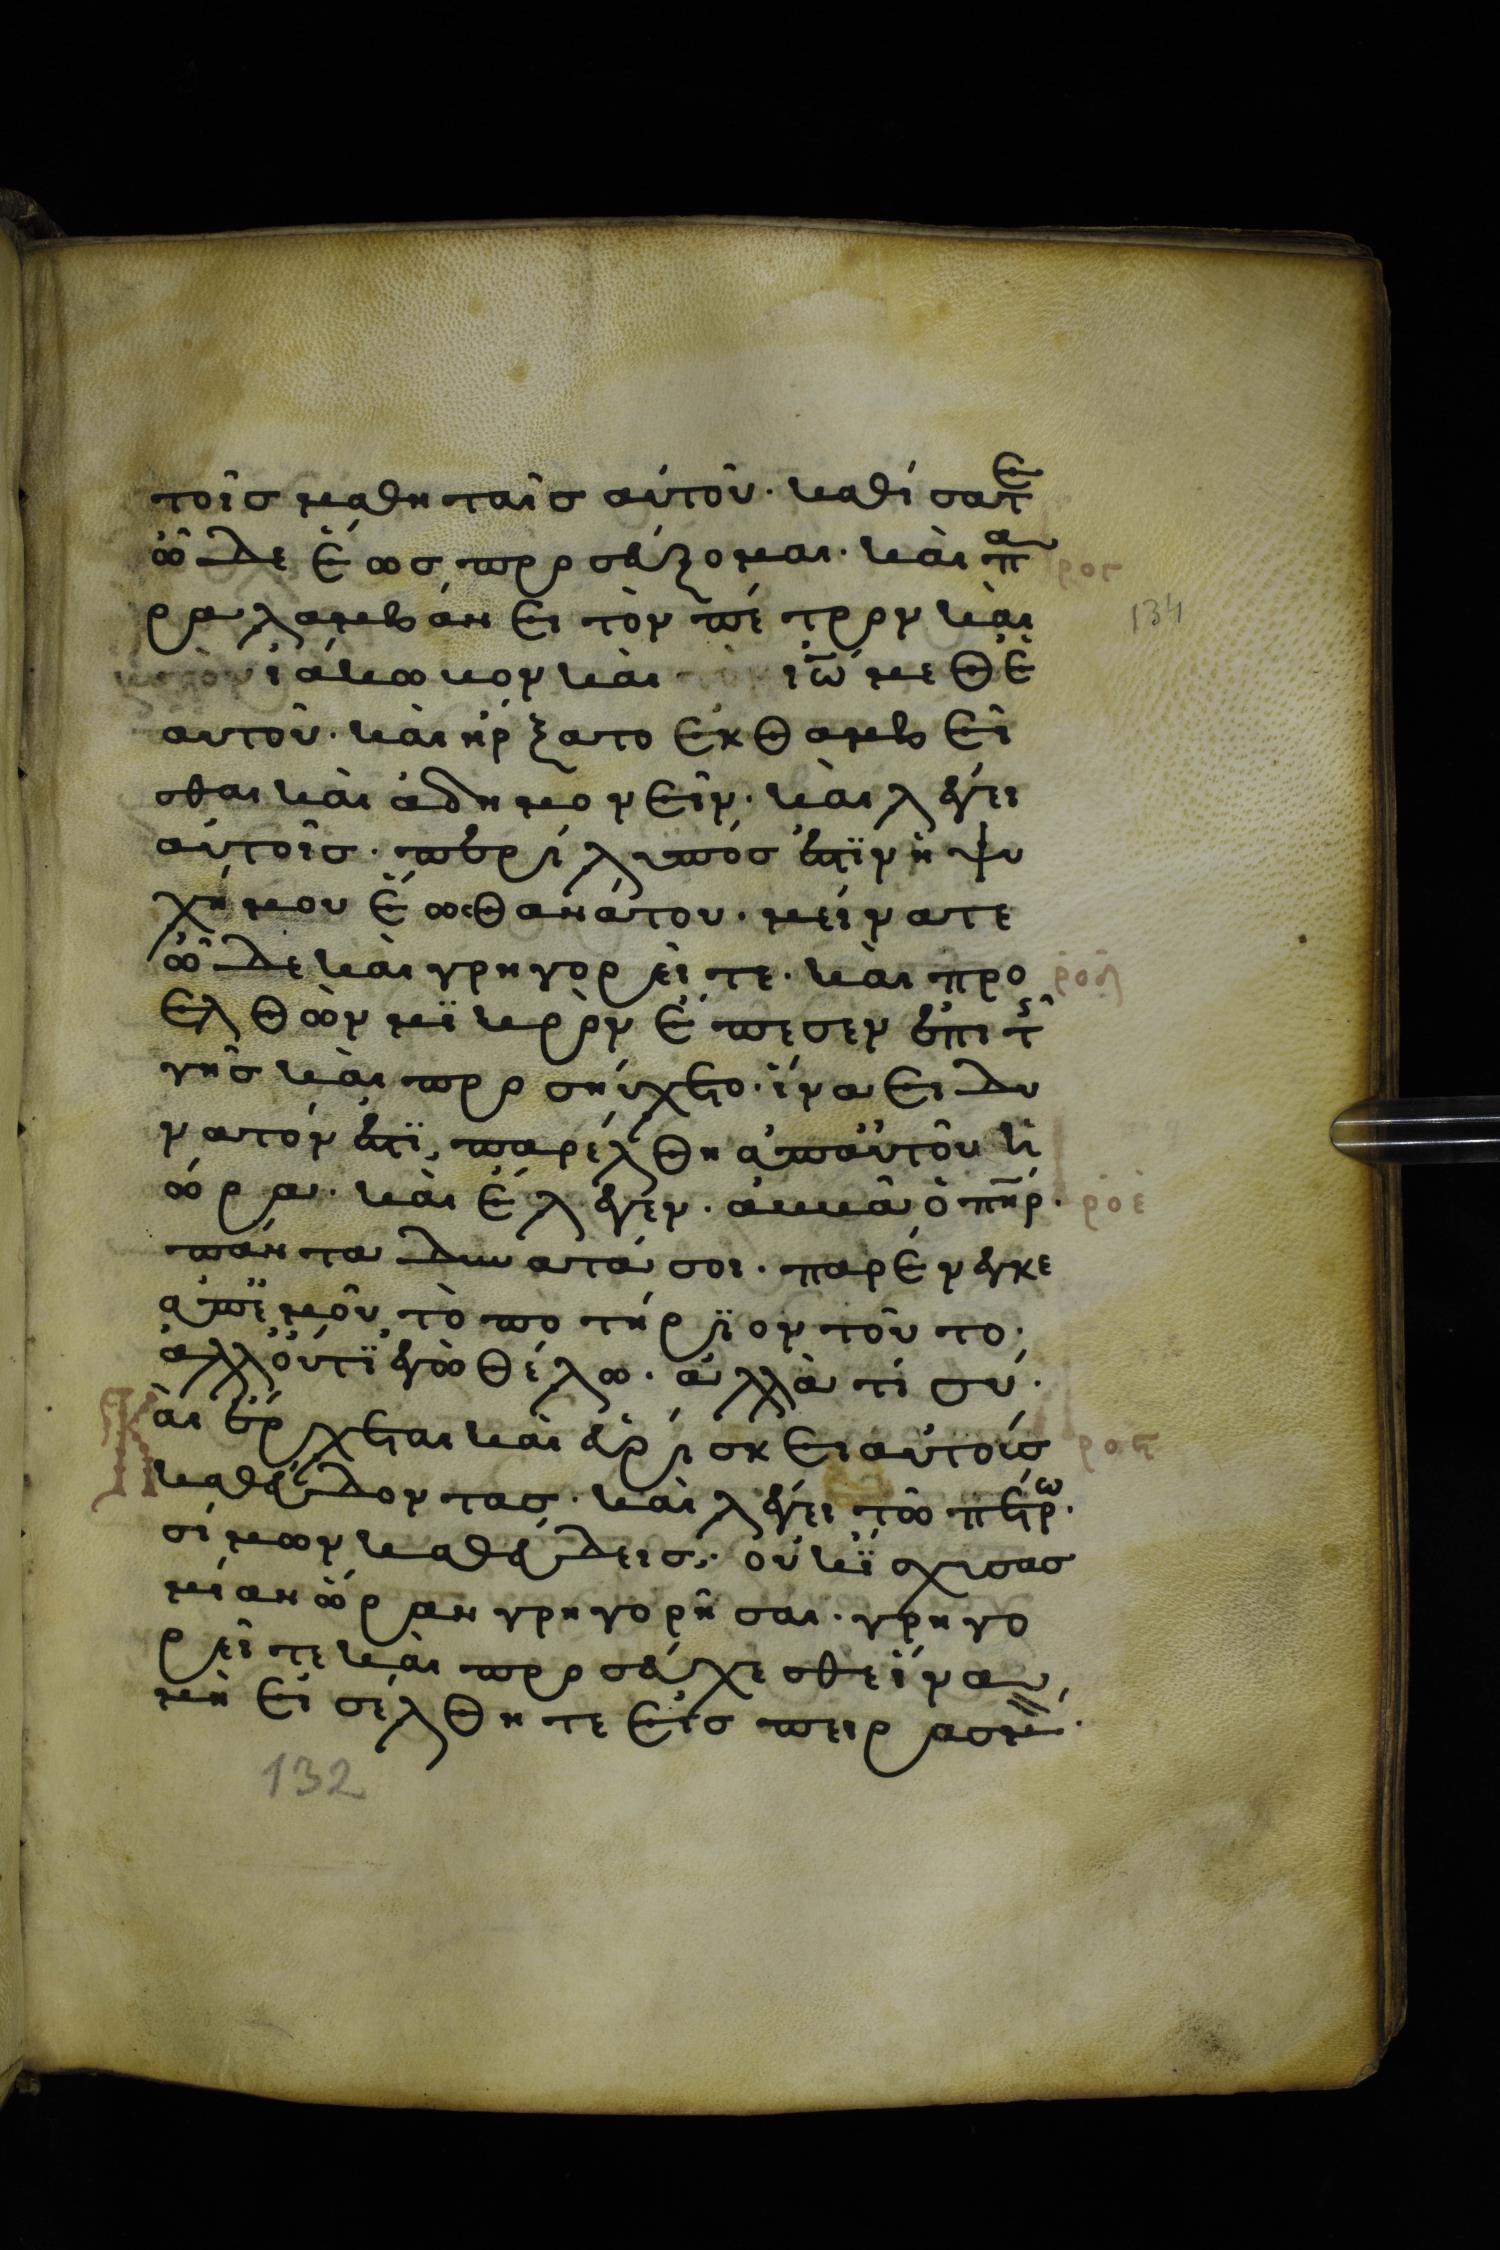 τοῖσ μαθηταῖσ αὐτοῦ· καθίσατε
ὧδε ἕωσ προσεύξομαι· καὶ πα
ραλαμβάνει τὸν πέτρον καὶ
ἰάκωβον καὶ ἰω̅ μεθ ἑ
αυτοῦ· καὶ ἤρξατο ἐκθαμβεῖ
σθαι καὶ ἀδημονεῖν· καὶ λέγει
αὐτοῖσ· περίλυπόσ ἐστϊν ἡ ψυ
χή μου ἕωσ θανάτου· μείνατε
ὧδε καὶ γρηγορεῖτε· καὶ προ
ελθὼν μϊκρὸν ἔπεσεν ἐπι τῆσ
γῆσ καὶ προσηύχετο· ἵνα ει δυ
νατόν ἐστϊ, παρέλθη ἀπ αὐτοῦ ἡ
ὥρα· καὶ ἔλεγεν· ἀββᾶ ὁ πη̅ρ·
πάντα δυνατά σοι· παρένεγκε
ἀπ ἐμοῦ τὸ ποτήρϊον τοῦτο·
ἀλλ ὀύ τϊ ἐγὼ θέλω· ἀλλὰ τί σύ·
Καὶ ἔρχεται καὶ εὑρίσκει αὐτοίσ
καθεύδοντασ· καὶ λέγει τῶ πέτρω·
σίμων καθεύδεισ· οὐκ ἴσχυσασ
μίαν ὥραν γρηγορῆσαι· γρηγο
ρεῖτε καὶ προσεύχεσθε ἵνα
μὴ εἰσέλθητε εἰσ πειρασμὸν·
ροε
134
132